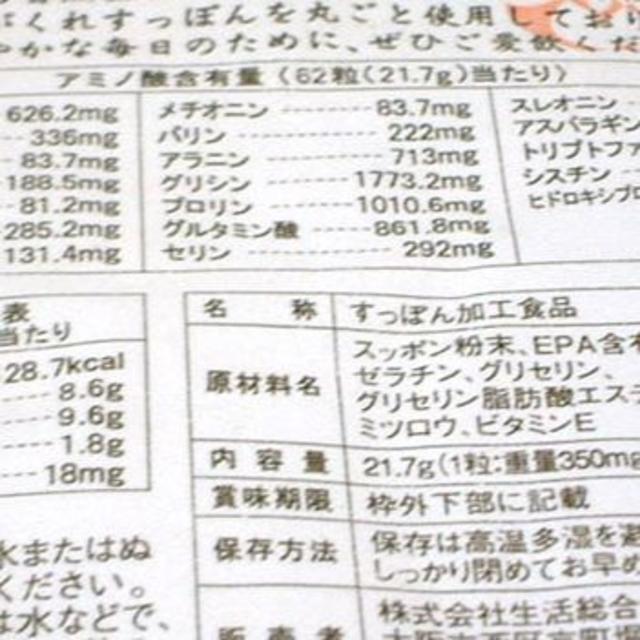 ふくれすっぽんを丸ごと使用してお
やかな毎日のために、ぜひご愛飲くだ
アミノ酸含有量(62粒(21.7g)当たり)
626.2mg
336mg
83.7mg
188.5mg
81.2mg
285.2mg
131.4mg
メチオニン 83.7mg
バリン 222mg
アラニン 713mg
グリシン 1773.2mg
プロリン 1010.6mg
グルタミン酸 861.8mg
セリン 292mg
スレオニン
アスパラギン
トリプトファ
シスチン
ヒドロキシプ
表
当たり
28.7kcal
8.6g
9.6g
1.8g
18mg
水またはぬ
ください。
は水などで、
名称 すっぽん加工食品
原材料名 スッポン粉末、EPA含有
ゼラチン、グリセリン、
グリセリン脂肪酸エステ
ミツロウ、ビタミンE
内容量 21.7g(1粒:重量350mg
賞味期限 枠外下部に記載
保存方法 保存は高温多湿を避
しっかり閉めてお早め
販売者 株式会社生活総合